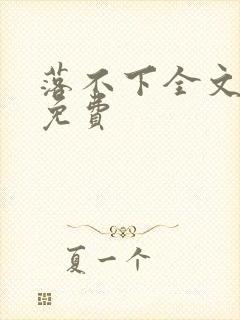 落不下全文
免费
夏一个